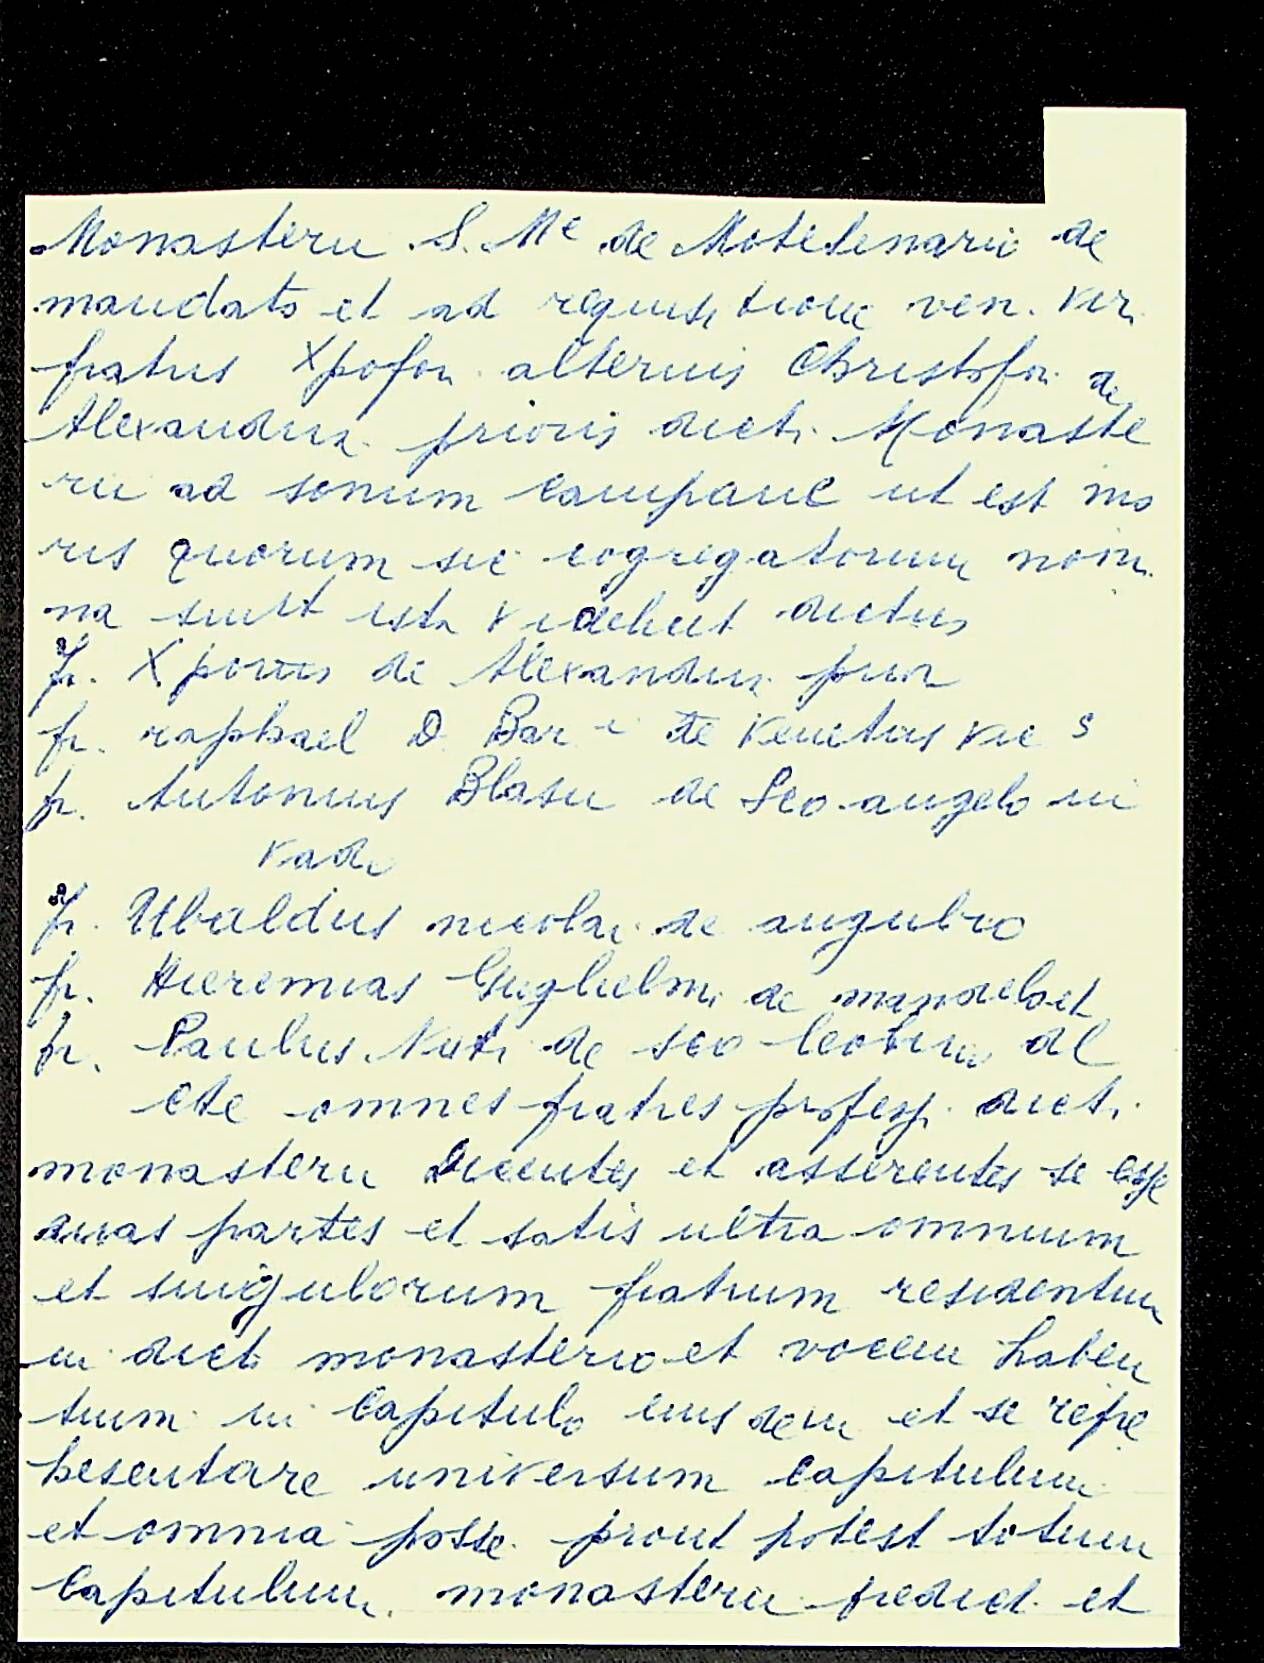 Monasterii S. Me de Motesenario de
mandato et ad requisitione ven. vir.
fratris Xpofori alterius Christofori de
Alexandria prioris dicti Monaste
rii ad sonum campane ut est mo
ris quorum sic cogregatorum nomi
na sunt ista videlicet dictus
fr. Xporus de Alexandria prior
fr. raphael D. Bar i de Venetiis vic s
fr. Antonius Blasii de Sco. angelo in
vado
fr. Ubaldus nicolai de augubio
fr. Hieremias Guglielmi de
fr. Paulus Nuti de sco leolino al
ete omnes fratres professi dicti
monasterii dicentes et asserentes se esse
duas partes et satis ultra omnium
et singulorum fratrum residentium
in dicto monasterio et vocem haben
tium in Capitulo eiusdem et se repre
hesentare universum capitulum
et omnia posse prout potest totum
Capitulum monasterii predicti et